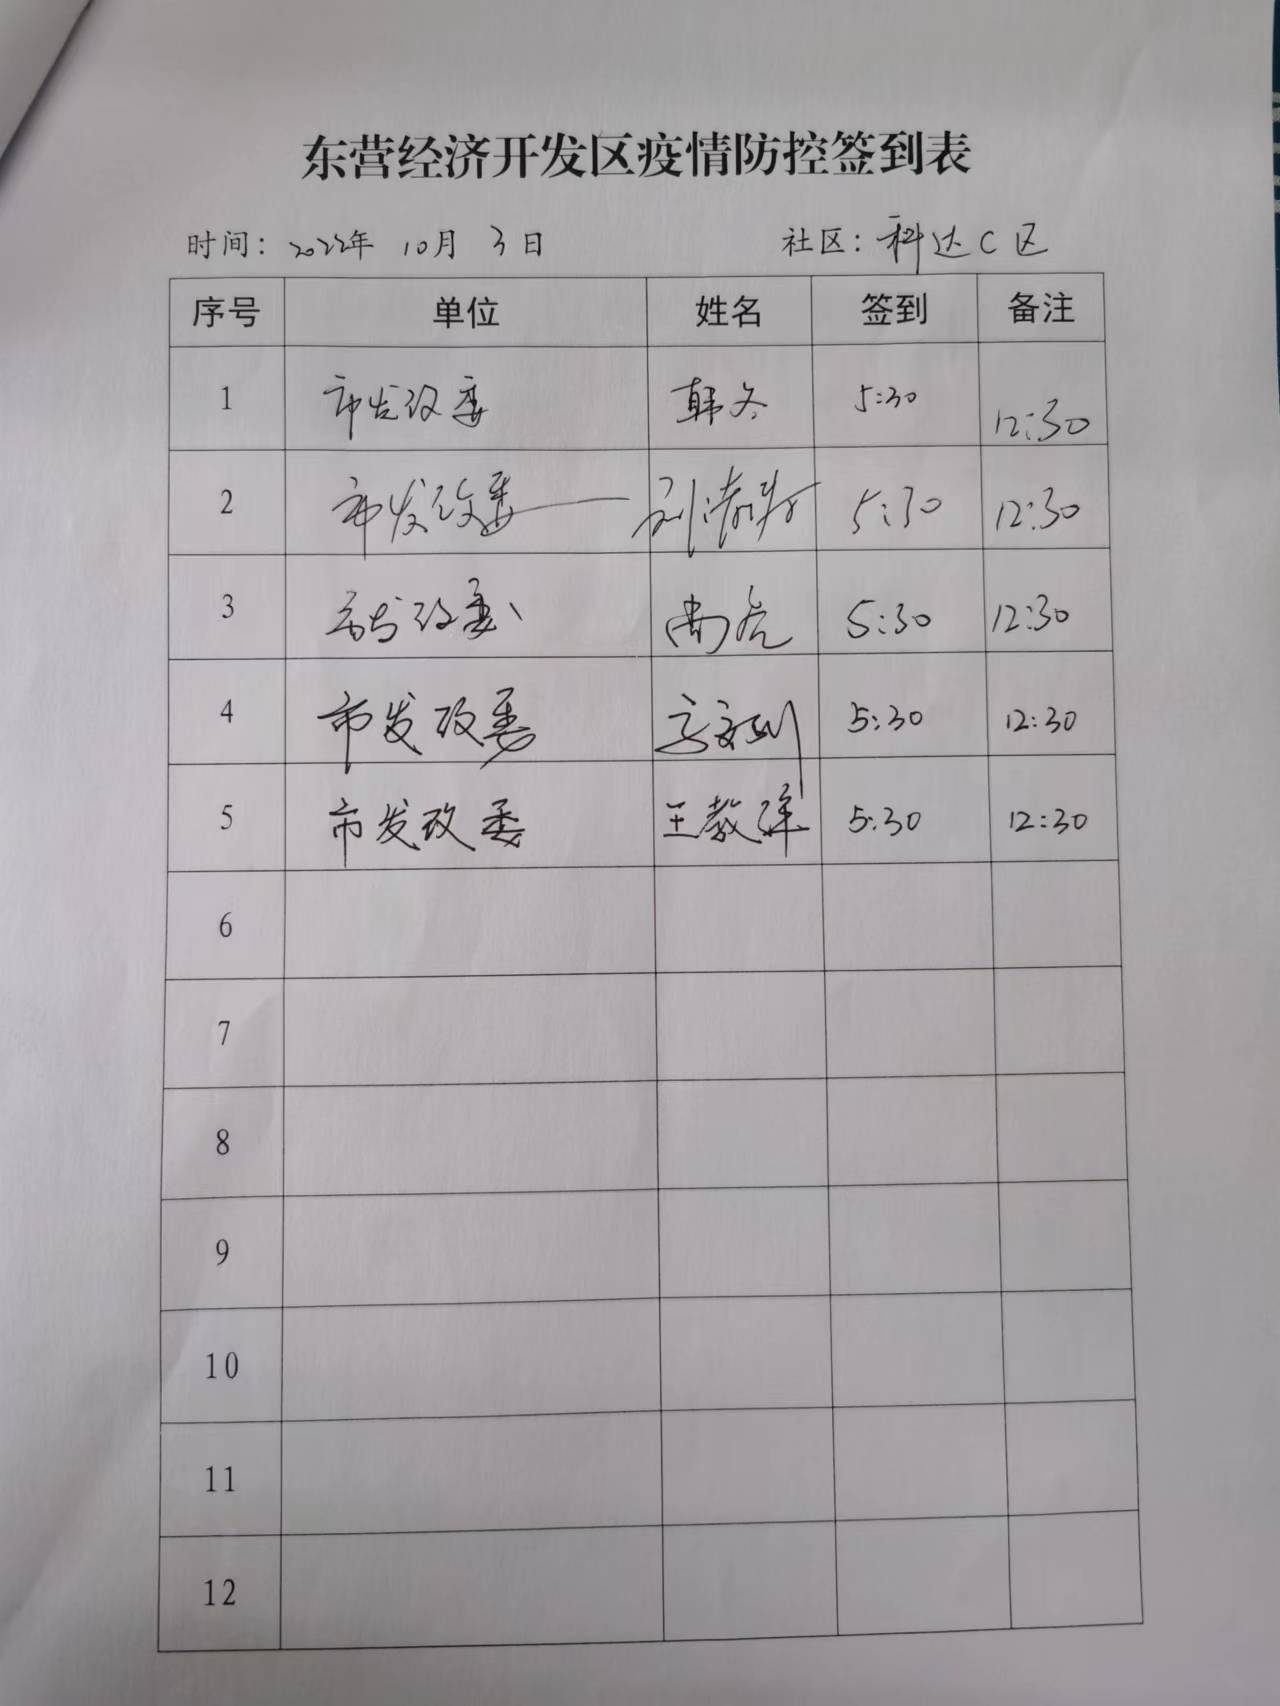 东营经济开发区疫情防控签到表
时间：2022年 10月 3日 社区：科达C区
序号 单位 姓名 签到 备注
1 市发改委 韩冬 5:30 12:30
2 市发改委 刘 5:30 12:30
3 市发改委 尚虎 5:30 12:30
4 市发改委 5:30 12:30
5 市发改委 王教祥 5:30 12:30
6
7
8
9
10
11
12